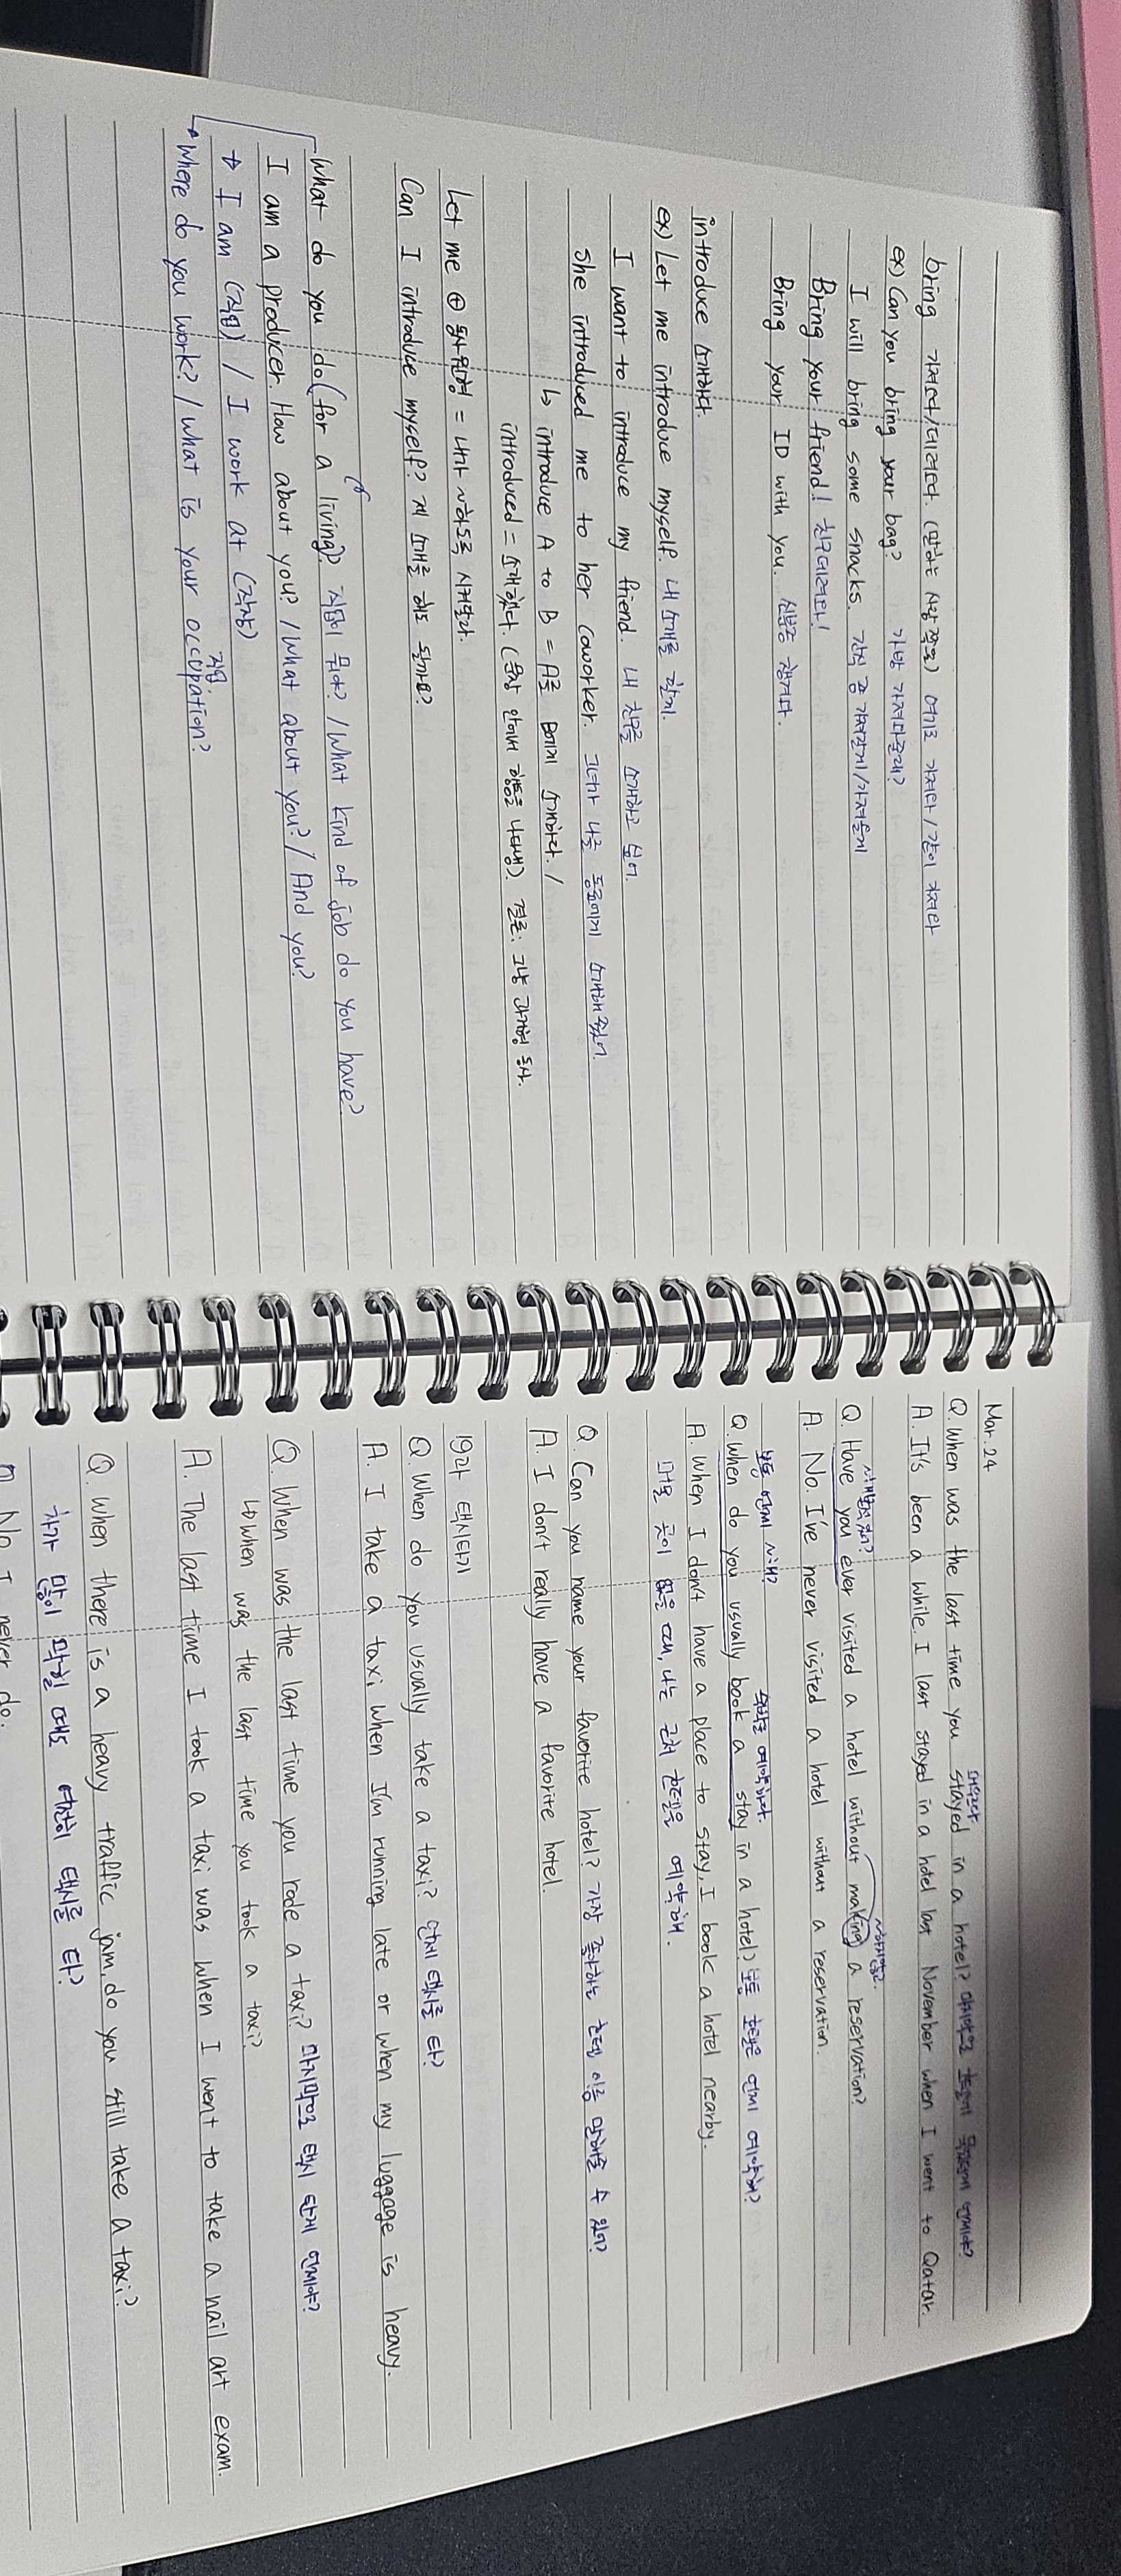 bring 가져오다/데려오다. (말하는 사람 쪽으로) 여기로 가져다 / 같이 가져다
ex) Can you bring your bag? 가방 가져다줄래?
I will bring some snacks. 간식 좀 가져갈게/가져올게
Bring your friend! 친구데려와!
Bring your ID with you. 신분증 챙겨와.
introduce 소개하다.
ex) Let me introduce myself. 내 소개를 할게.
I want to introduce my friend. 내 친구를 소개하고 싶어.
She introduced me to her coworker. 그녀가 나를 동료에게 소개해줬어.
↳ introduce A to B = A를 B에게 소개하다. /
introduced = 소개했다. (문장 안에서 행동을 나타냄). 결론: 그냥 과거형 동사.
Let me ⊕ 동사원형 = 내가 ~하도록 시켜줘라.
Can I introduce myself? 제 소개를 해도 될까요?
What do you do (for a living)? 직업이 뭐야? / What kind of job do you have?
I am a producer. How about you? / What about you? / And you?
→ I am (직업) / I work at (직장)
직업.
Where do you work? / What is your occupation?
Mar. 24
머무르다
Q. When was the last time you stayed in a hotel? 마지막으로 호텔에 언제야?
A. It's been a while. I last stayed in a hotel last November when I went to Qatar.
~해본적 있어? ~하지않고.
Q. Have you ever visited a hotel without making a reservation?
A. No. I've never visited a hotel without a reservation.
보통 언제 ~해? 숙박을 예약하다.
Q. When do you usually book a stay in a hotel? 보통 호텔은 언제 예약해?
A. When I don't have a place to stay, I book a hotel nearby.
머물 곳이 없을 때, 나는 근처 호텔을 예약해.
Q. Can you name your favorite hotel? 가장 좋아하는 호텔 이름 말해줄 수 있어?
A. I don't really have a favorite hotel.
19과 택시타기
Q. When do you usually take a taxi? 언제 택시를 타?
A. I take a taxi when I'm running late or when my luggage is heavy.
Q. When was the last time you rode a taxi? 마지막으로 택시 탄게 언제야?
↳ When was the last time you took a taxi?
A. The last time I took a taxi was when I went to take a nail art exam.
Q. When there is a heavy traffic jam, do you still take a taxi?
차가 많이 막힐 때도 여전히 택시를 타?
No I never do.